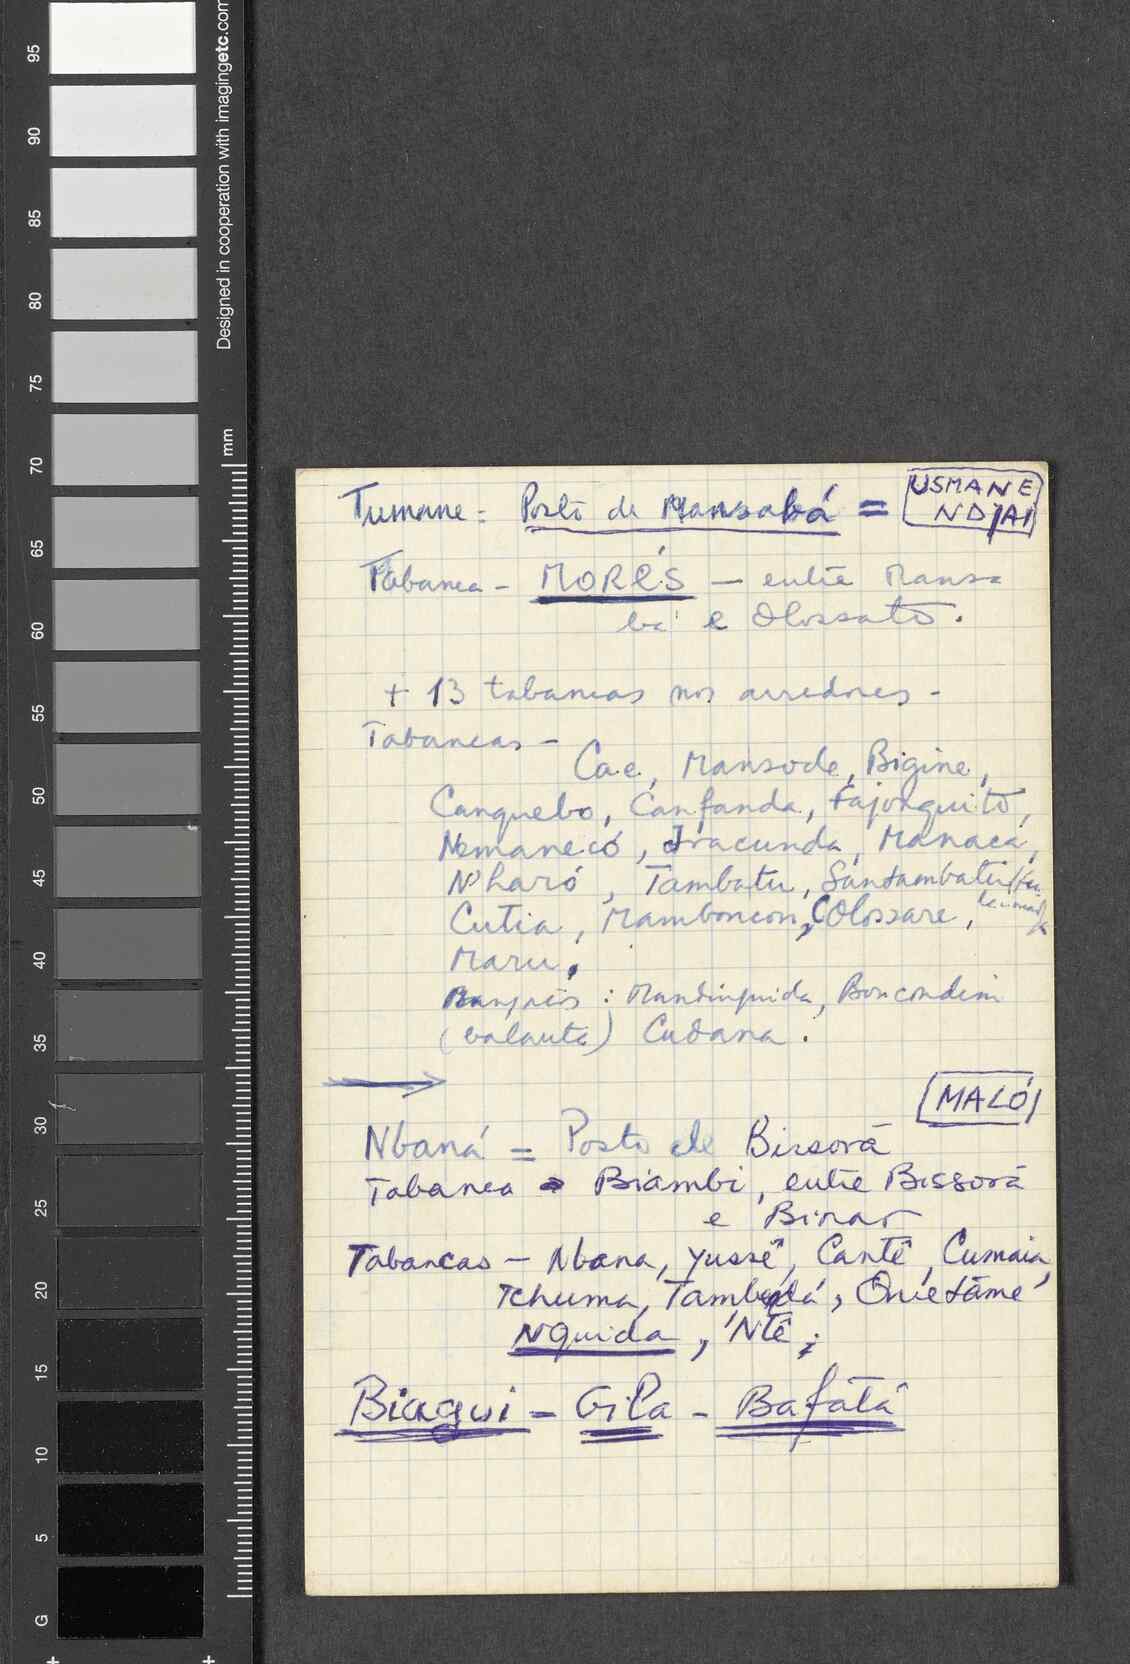 Tumane = Posto de Mansabá = USMANE
NDJAI
Tabanca - MORÉS - entre Mansa
bá e Olossato.
+ 13 tabancas nos arredores -
Tabancas -
Cae, Mansode, Bigine,
Canquebo, Canfanda, Fajonquito,
Nemanecó, Iracunda, Manaca,
N'haró, Tambatu, Sansambatu
Cutia, Mamboncon, Colossare,
Maru.
: Mandinguida, Boncondim
(balanta) Cudana.
MALÓ
Nbaná = Posto de Bissorã
Tabanca - Biambi, entre Bissorã
e Binar
Tabancas - Nbana, Yussê, Cantê, Cumaia,
Tchuma, Quietāme
NQuida, 'Ntê;
Biagui - Gila - Bafatá
95
90
85
80
75
70
65
60
55
50
45
40
35
30
25
20
15
10
5
G
mm
Designed in cooperation with imagingetc.com